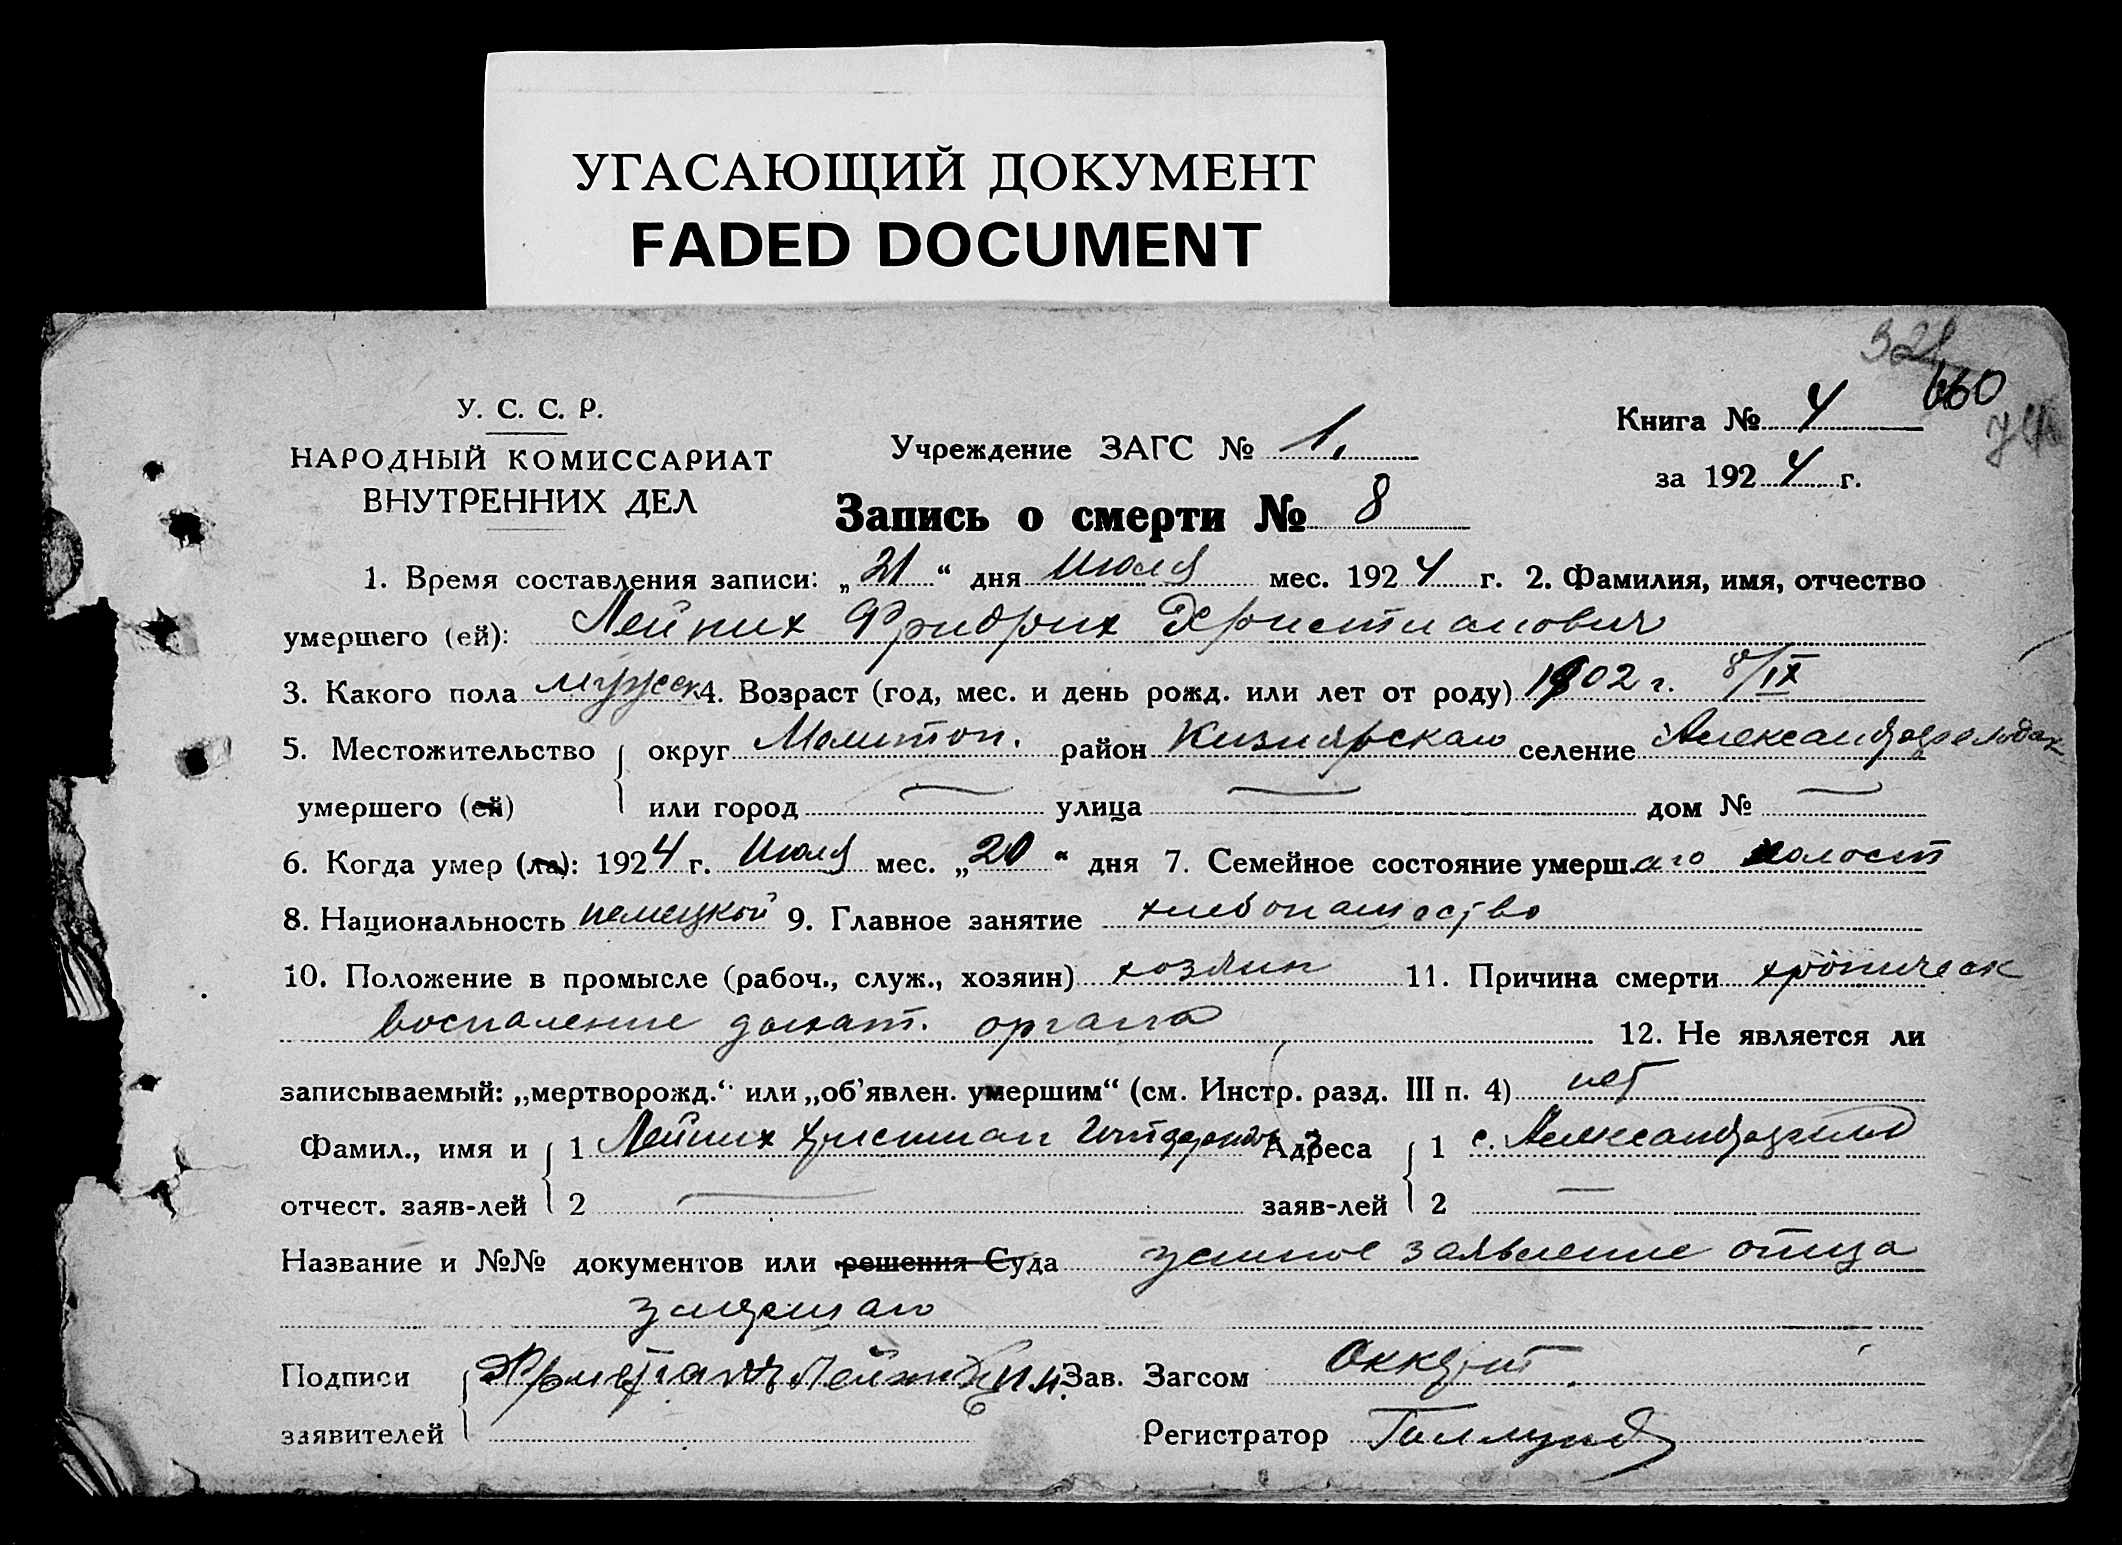 УГАСАЮЩИЙ ДОКУМЕНТ
FADED DOCUMENT
660
У. С. С. Р.
НАРОДНЫЙ КОМИССАРИАТ
ВНУТРЕННИХ ДЕЛ
Учреждение ЗАГС № 1.
Книга № 4
за 1924 г.
Запись о смерти № 8
1. Время составления записи: „21“ дня Июля мес. 1924 г. 2. Фамилия, имя, отчество
умершего (ей): Лейних Фридрих Христианович
3. Какого пола мужеск 4. Возраст (год, мес. и день рожд. или лет от роду) 1902 г. 8/IX
5. Местожительство округ Мелитоп. район Кизиярскаго селение
умершего (ей) или город — улица — дом № —
6. Когда умер (ла): 1924 г. Июля мес. „20“ дня 7. Семейное состояние умерш.аго холост
8. Национальность немецкой 9. Главное занятие хлебопашество
10. Положение в промысле (рабоч., служ., хозяин) хозяин 11. Причина смерти хроническ
воспаление дыхат. органа 12. Не является ли
записываемый: „мертворожд.“ или „об’явлен. умершим“ (см. Инстр. разд. III п. 4) нет
Фамил., имя и 1 Лейних Христиан Адреса 1 с.
отчест. заяв-лей 2 — заяв-лей 2 —
Название и №№ документов или решения Суда устное заявление отца
умершаго
Подписи Зав. Загсом
заявителей Регистратор